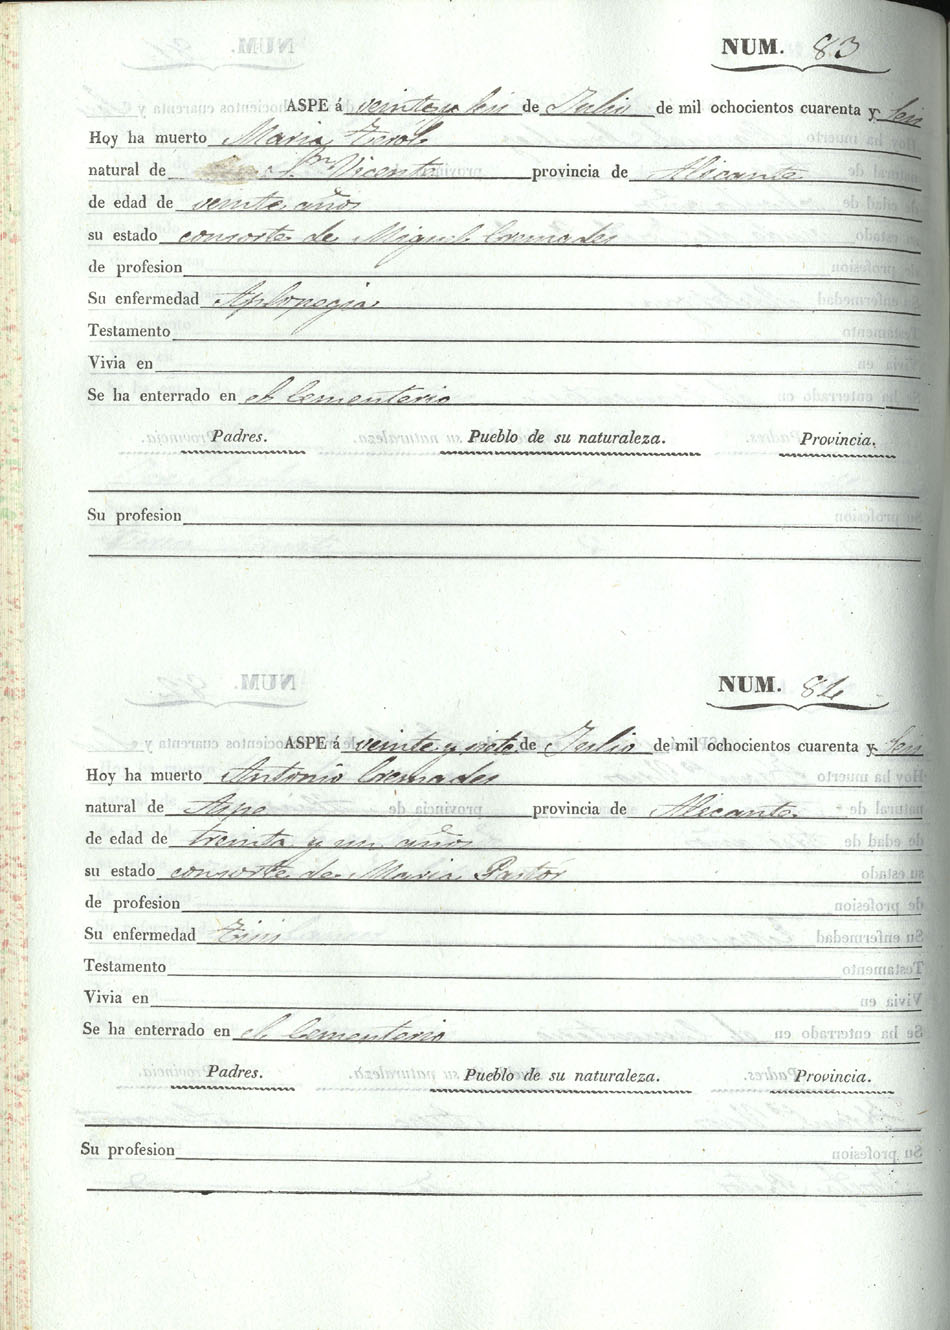 NUM. 83
ASPE á veinte y seis de Julio de mil ochocientos cuarenta y seis
Hoy ha muerto Maria
natural de Sn Vicente provincia de Alicante
de edad de veinte años
su estado consorte de Miguel Cremades
de profesion
Su enfermedad Aplopegia
Testamento
Vivia en
Se ha enterrado en el Cementerio
Padres. Pueblo de su naturaleza. Provincia.
Su profesion
NUM. 84
ASPE á veinte y siete de Julio de mil ochocientos cuarenta y seis
Hoy ha muerto Antonio Cremades
natural de Aspe provincia de Alicante
de edad de treinta y un años
su estado consorte de Maria Pastor
de profesion
Su enfermedad Tisis
Testamento
Vivia en
Se ha enterrado en el Cementerio
Padres. Pueblo de su naturaleza. Provincia.
Su profesion